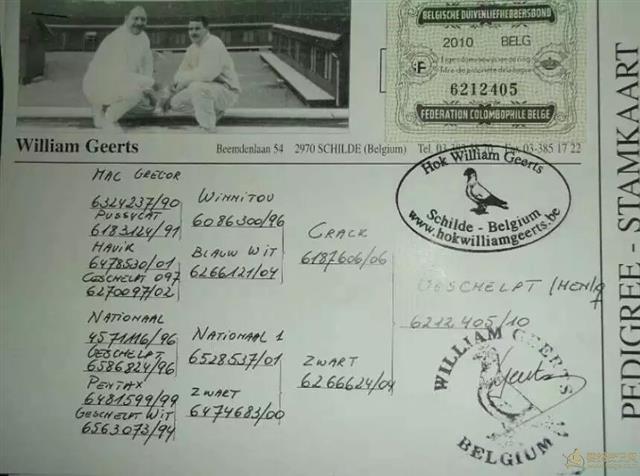 BELGISCHE DUIVENLIEFHEBBERSBOND
2010 BELG
6212405
FEDERATION COLOMBOPHILE BELGE
William Geerts
Beemdenlaan 54 2970 SCHILDE (Belgium) Tel. Fax 03-385 17 22
Hok William Geerts
Schilde - Belgium
www.hokwilliamgeerts.be
PEDIGREE - STAMKAART
MAC GREGOR
6324237/90
PUSSYCAT
6183124/91
HAVIK
6478530/01
GESCHELPT 097
6270097/02
NATIONAAL
4571116/96
GESCHELPT
6586824/96
PENTAX
6481599/99
GESCHELPT WIT
6563073/94
WINNITOU
6086300/96
BLAUW WIT
6266121/04
NATIONAAL 1
6528537/01
ZWART
6474683/00
CRACK
6187606/06
ZWART
6266624/04
GESCHELPT
6212405/10
WILLIAM GEERTS
BELGIUM